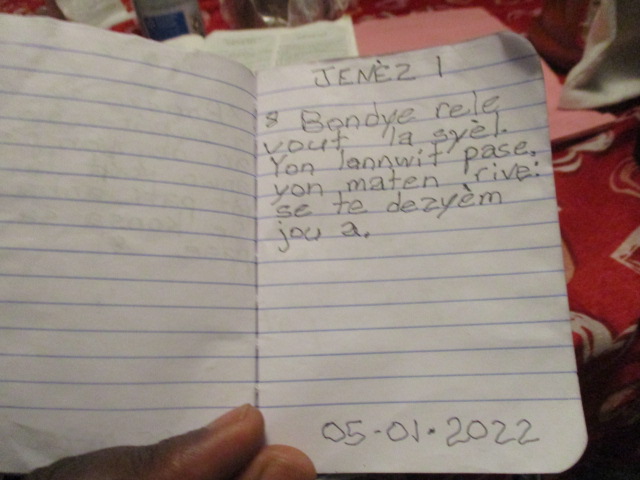 JENÈZ 1
8 Bondye rele
vout la syèl.
Yon lannwit pase.
yon maten rive:
se te dezyèm
jou a.
05-01-2022